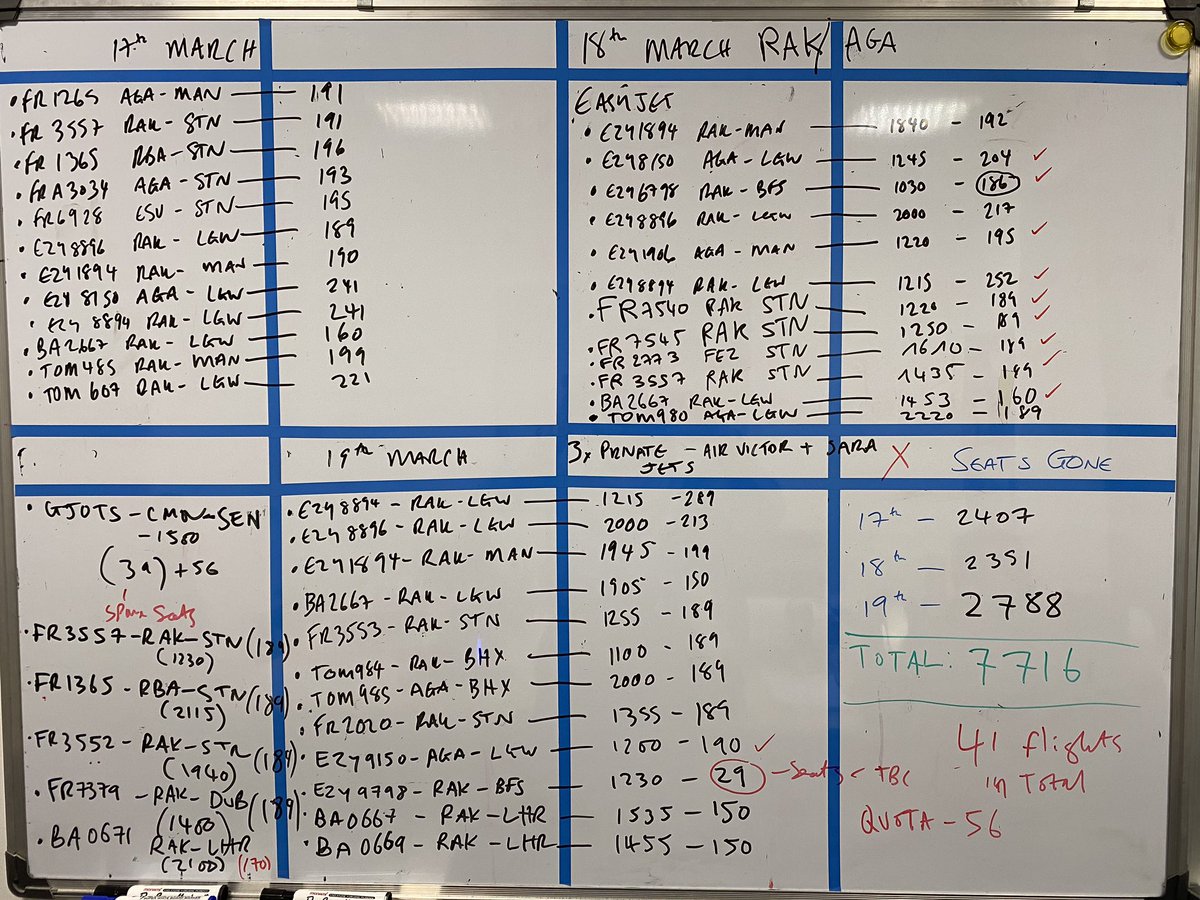 17th MARCH
• FR1265 AGA-MAN — 191
• FR 3557 RAK-STN — 191
• FR 1365 RBA-STN — 196
• FRA3034 AGA-STN — 193
• FR6928 ESU-STN — 195
• EZY8896 RAK-LGW — 189
• EZY1894 RAK-MAN — 190
• EZY 8150 AGA-LGW — 241
• EZY 8894 RAK-LGW — 241
• BA2667 RAK-LGW — 160
• TOM485 RAK-MAN — 199
• TOM 607 RAK-LGW — 221
18th MARCH RAK/AGA
EASYJET
• EZY1894 RAK-MAN — 1840 - 192
• EZY8150 AGA-LGW — 1245 - 204 ✓
• EZY6798 RAK-BFS — 1030 - 186 ✓
• EZY8896 RAK-LGW — 2000 - 217
• EZY1906 AGA-MAN — 1220 - 195 ✓
• EZY8894 RAK-LGW — 1215 - 252 ✓
• FR7540 RAK STN — 1220 - 189 ✓
• FR7545 RAK STN — 1250 - 189 ✓
• FR2773 FEZ STN — 1610 - 189 ✓
• FR 3557 RAK STN — 1435 - 189 ✓
• BA2667 RAK-LGW — 1453 - 160 ✓
• TOM980 AGA-LGW — 2220 - 189
3x PRIVATE JETS - AIR VICTOR + SARA X
• GJOTS-CMN-SEN
-1500
(39) + 56
spare seats
• FR3557-RAK-STN (189)
(1230)
• FR1365-RBA-STN (189)
(2115)
• FR3552-RAK-STN (189)
(1940)
• FR7379-RAK-DUB (189)
(1400)
• BA0671 RAK-LHR
(2100) (170)
19th MARCH
• EZY8894-RAK-LGW — 1215 - 289
• EZY8896-RAK-LGW — 2000 - 213
• EZY1894-RAK-MAN — 1945 - 199
• BA2667-RAK-LGW — 1905 - 150
• FR3553-RAK-STN — 1255 - 189
• TOM984-RAK-BHX — 1100 - 189
• TOM985-AGA-BHX — 2000 - 189
• FR2020-RAK-STN — 1355 - 189
• EZY9150-AGA-LGW — 1200 - 190 ✓
• EZY9798-RAK-BFS — 1230 - 29 - Seats - TBC
• BA0667-RAK-LHR — 1535 - 150
• BA0669-RAK-LHR — 1455 - 150
SEATS GONE
17th - 2407
18th - 2351
19th - 2788
TOTAL: 7716
41 flights
in Total
QUOTA - 56